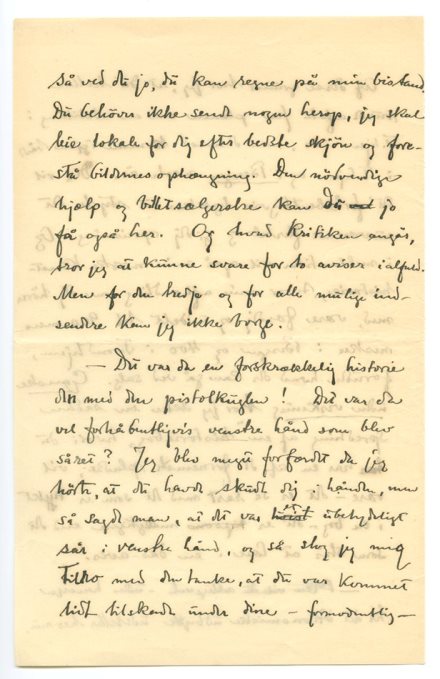 så ved du jo, du kan regne på min bistand.
Du behøver ikke sende nogen herop, jeg skal
leie lokale for dig efter bedste skjön og fore-
stå billdernes ophængning. Den nödvendige
hjælp og billetsælgerske kan du jo
få også her. Og hvad Kritiken angår,
tror jeg at kunne svare for to aviser ialfald.
Men for den tredje og for alle mulige ind-
sendere kan jeg ikke borge.
— Det var da en forskrækkelig historie
den med den pistolkuglen! Det var da
vel forhåbentligvis venstre hånd som blev
såret? Jeg blev meget forfærdet da jeg
hörte, at du havde skudt dig i hånden, men
så sagde man, at det var et ubetydeligt
sår i venstre hånd, og så slog jeg mig
tilro med den tanke, at du var kommet
lidt tilskade under dine — formodentlig —